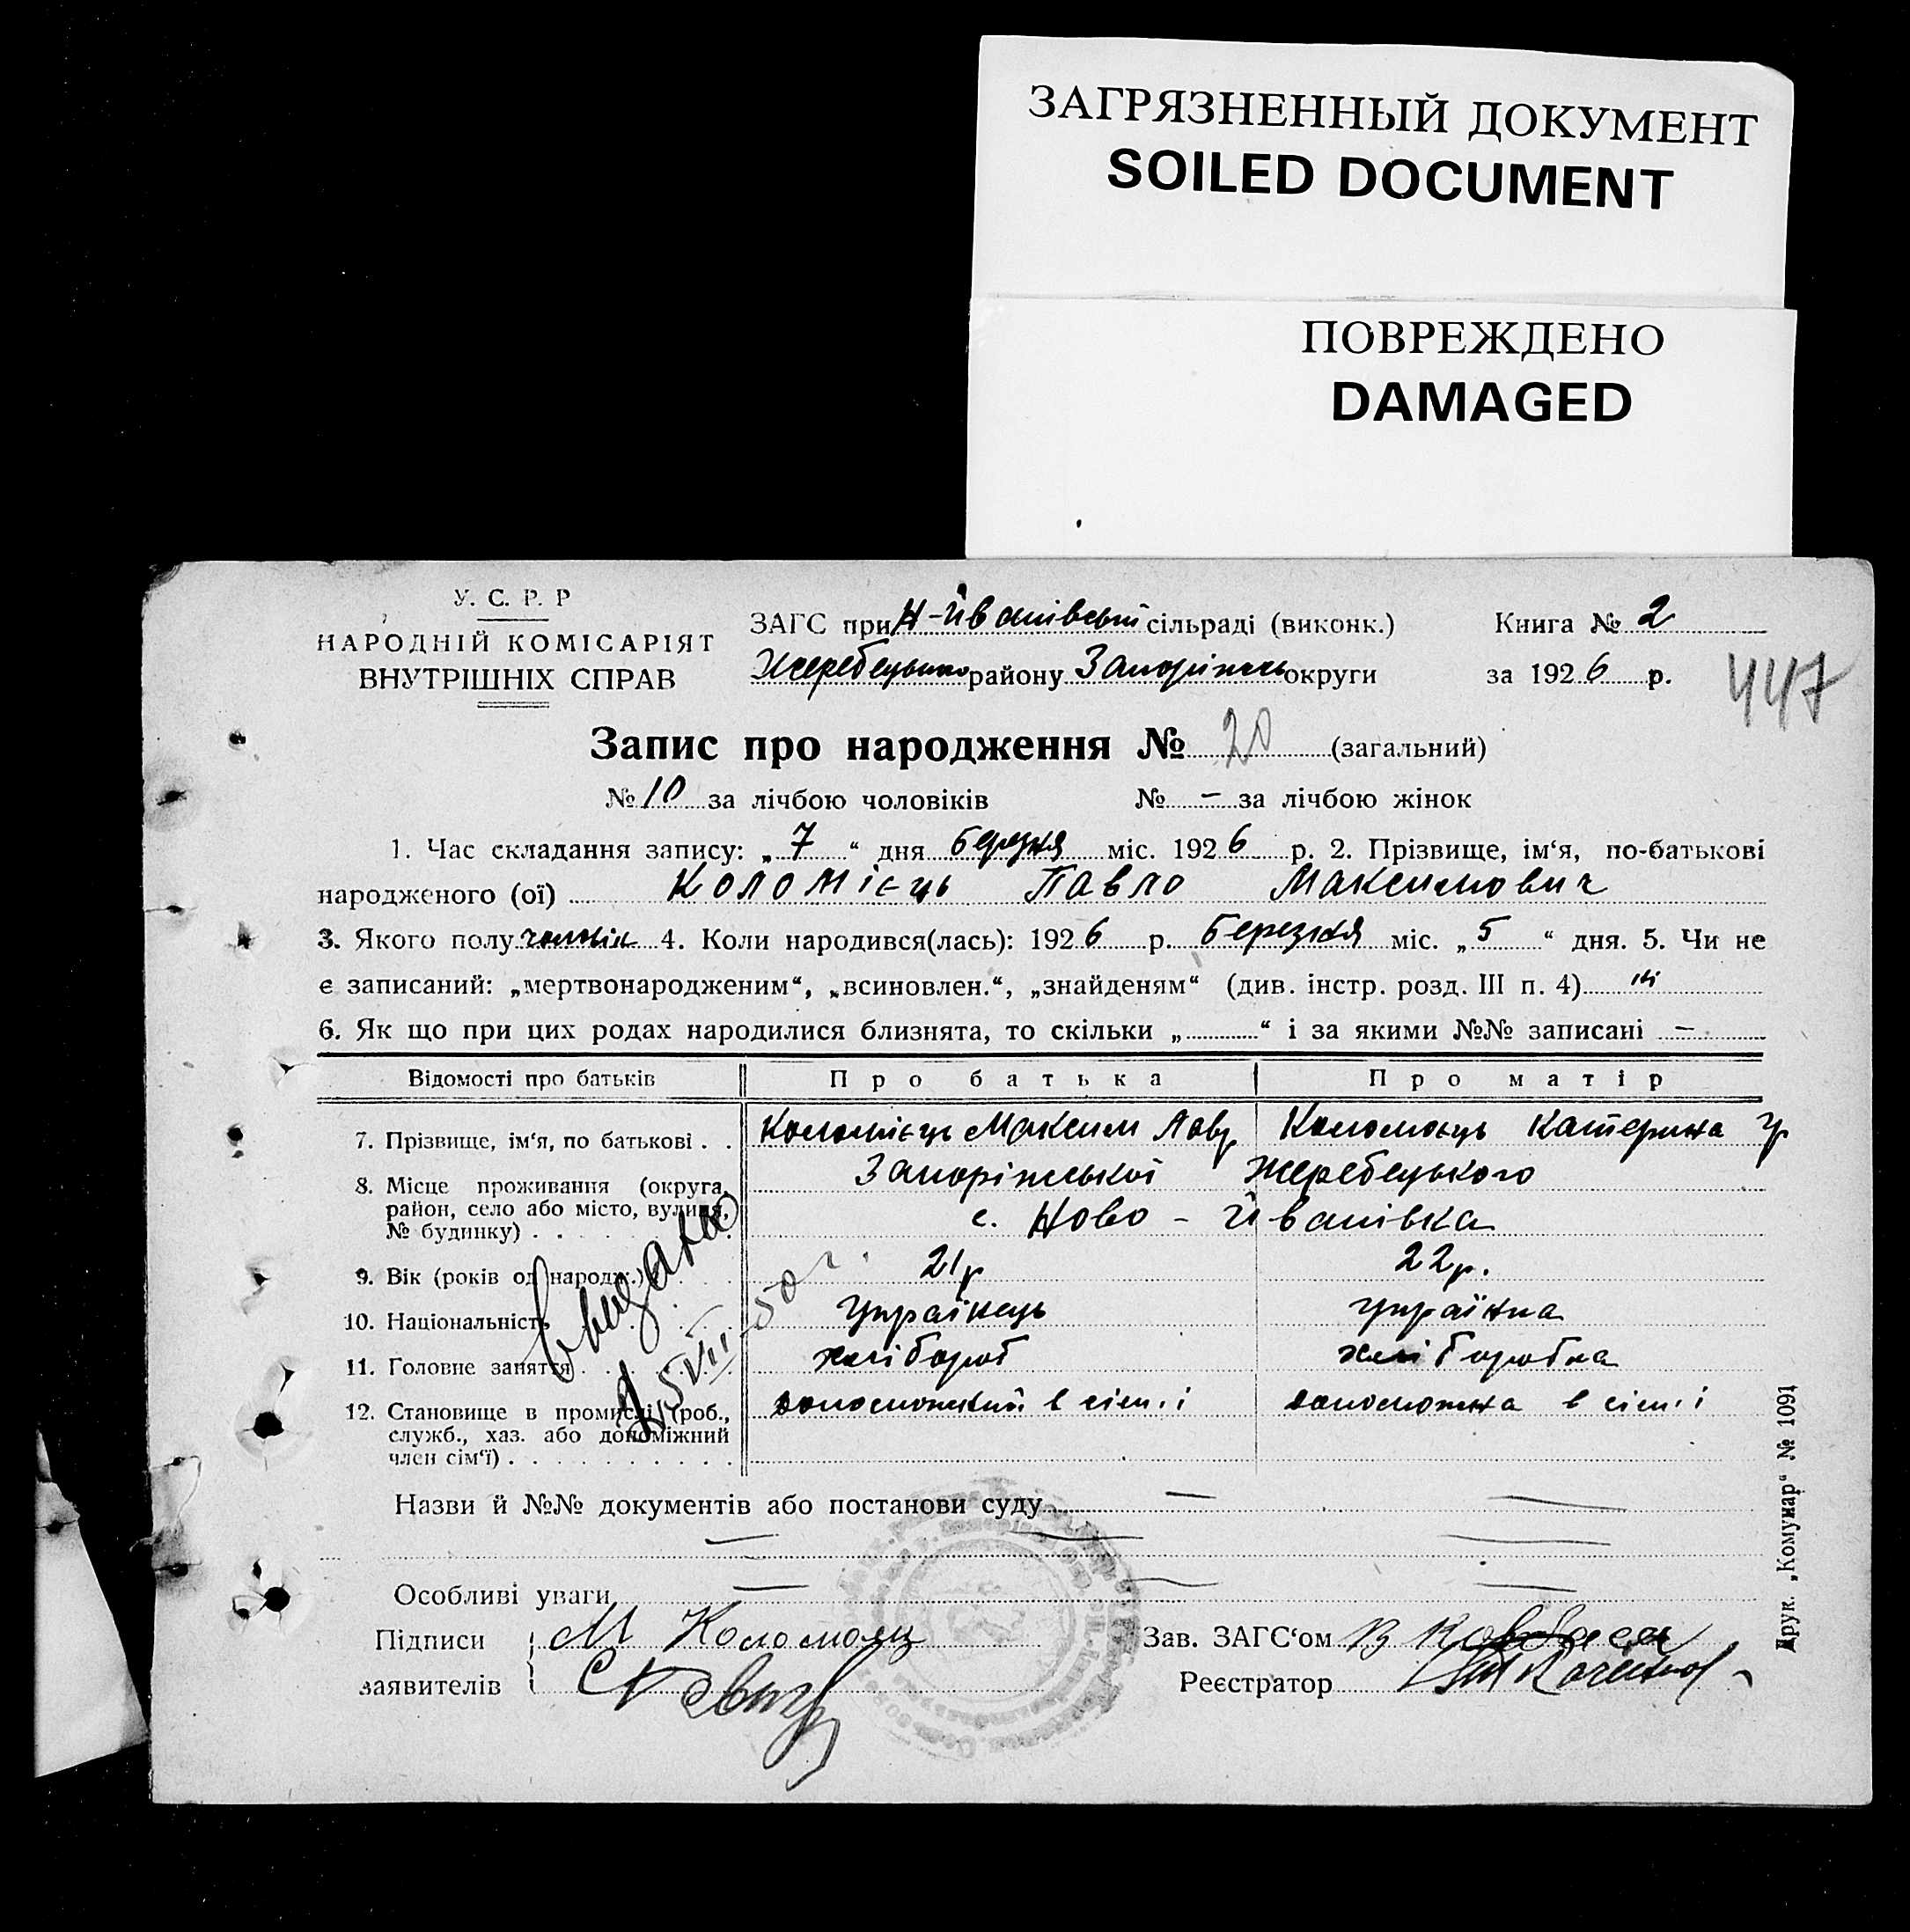 ЗАГРЯЗНЕННЫЙ ДОКУМЕНТ
SOILED DOCUMENT
ПОВРЕЖДЕНО
DAMAGED
У. С. Р. Р
НАРОДНІЙ КОМІСАРІЯТ
ВНУТРІШНІХ СПРАВ
ЗАГС при Н-Йванівській сільраді (виконк.)
Жеребецького району Запоріжськ округи
Книга № 2
за 1926 р.
447
Запис про народження № 20 (загальний)
№ 10 за лічбою чоловіків № — за лічбою жінок
1. Час складання запису: „7“ дня березня міс. 1926 р. 2. Прізвище, ім‘я, по-батькові
народженого (ої) Коломієць Павло Максимович
3. Якого полу чоловік 4. Коли народився(лась): 1926 р. березня міс. „5“ дня. 5. Чи не
є записаний: „мертвонародженим“, „всиновлен.“, „знайденям“ (див. інстр. розд. III п. 4) ні
6. Як що при цих родах народилися близнята, то скільки „ “ і за якими №№ записані —
Відомості про батьків Про батька Про матір
7. Прізвище, ім‘я, по батькові . . Коломієць Максим Лавр Коломоєць Катерина Гр
8. Місце проживання (округа, Запоріжської Жеребецького
район, село або місто, вулиця, с. Ново-Йванівка
№ будинку) . .
9. Вік (років од народж.) 21р 22р.
10. Національність Українець українка
11. Головне заняття хлібороб хліборобка
12. Становище в промислі (роб., допоможний в сім.і допоможна в сім.і
служб., хаз. або допоміжний
член сім‘ї) . . . . . . . . . .
25 VIII 50 г
Назви й №№ документів або постанови суду —
Особливі уваги —
Підписи М Коломоец Зав. ЗАГС‘ом В
заявителів Реєстратор
Друк. „Комунар“ № 1091